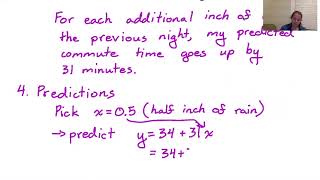 For each additional inch of
the previous night, my predicted
commute time goes up by
31 minutes.
4. Predictions
Pick x=0.5 (half inch of rain)
→ predict y = 34 + 31x
= 34+